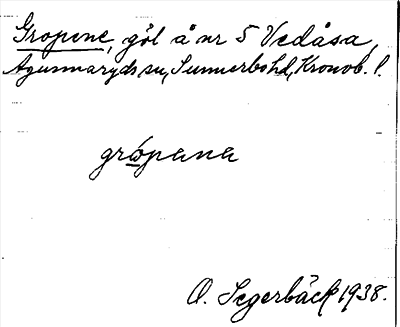 Gropene, göl å nr 5 Vedåsa,
Agunnaryds sn, Sunnerbo hd, Kronob. l.
grópana
O. Segerbäck 1938.